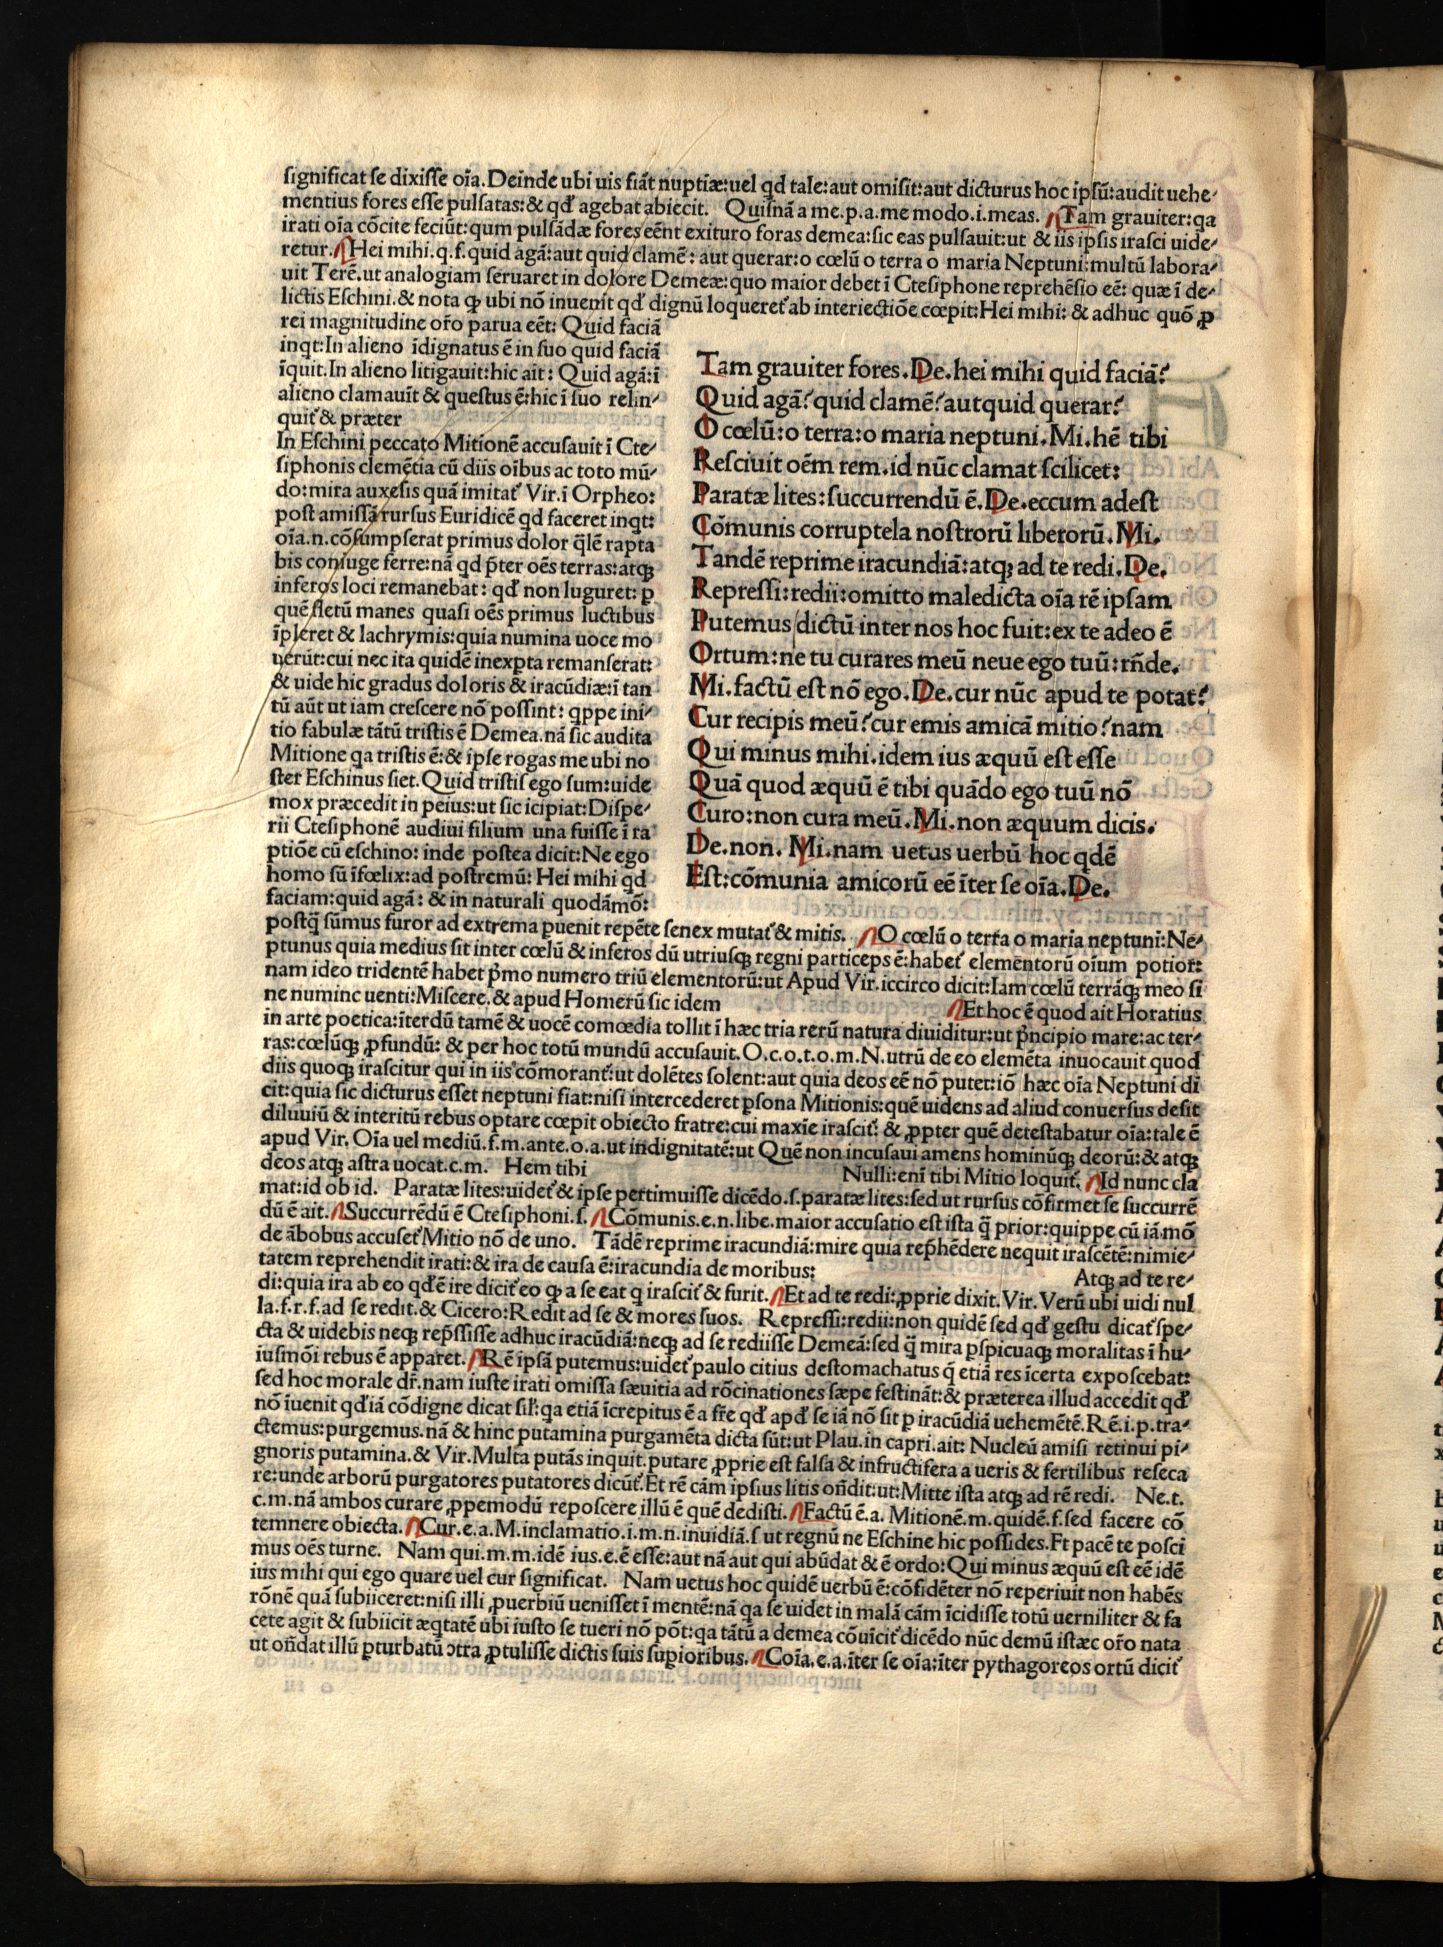 significat se dixisse oīa.Deinde ubi uis fiāt nuptiæ:uel qd tale:aut omisit:aut dicturus hoc ipsū:audit uehe⸗
mentius fores esse pulsatas:& qd̓ agebat abiecit. Quisnā a me.p.a.me modo.i.meas. Tam grauiter:qa
irati oīa cōcite feciūt:qum pulsādæ fores eēnt exituro foras demea:sic eas pulsauit:ut & iis ipsis irasci uide⸗
retur. Hei mihi.q.f.quid agā:aut quid clamē: aut querar:o cœlū o terra o maria Neptuni:multū labora⸗
uit Terē.ut analogiam seruaret in dolore Demeæ:quo maior debet ī Ctesiphone reprehēsio eē: quæ ī de⸗
lictis Eschini.& nota ꝙ ubi nō inuenit qd̓ dignū loqueret᷑ ab interiectiōe cœpit:Hei mihi: & adhuc quō ꝓ
rei magnitudine or̄o parua eēt: Quid faciā
inqt:In alieno īdignatus ē in suo quid faciā
īquit.In alieno litigauit:hic ait: Quid agā:ī
alieno clamauīt & questus ē:hic ī suo relin⸗
quit᷑ & præter
In Eschini peccato Mitionē accusauit ī Cte⸗
siphonis clemētia cū diis oībus ac toto mū⸗
do:mira auxesis quā imitat᷑ Vir.ī Orpheo:
post amissā rursus Euridicē qd faceret inqt:
oīa.n.cōsumpserat primus dolor q̄lē rapta
bis coniuge ferre:nā qd p̄ter oēs terras:atqꝫ
inferos loci remanebat: qd̓ non luguret: ꝑ
quē fletū manes quasi oēs primus luctibus
īpleret & lachrymis:quia numina uoce mo
uerūt:cui nec ita quidē inexꝑta remanserat:
& uide hic gradus doloris & iracūdiæ:ī tan
tū aūt ut iam crescere nō possint: qppe ini⸗
tio fabulæ tātū tristis ē Demea.nā sic audita
Mitione qa tristis ē:& ipse rogas me ubi no
ster Eschinus siet.Quid tristis ego sum:uide
mox præcedit in peius:ut sic icipiat:Dispe⸗
rii Ctesiphonē audiui filium una fuisse ī ra
ptiōe cū eschino: inde postea dicit:Ne ego
homo sū īfœlix:ad postremū: Hei mihi qd
faciam:quid agā: & in naturali quodāmō:
Tam grauiter fores.De.hei mihi quid faciā?
Quid agā?quid clamē?autquid querar?
O cœlū:o terra:o maria neptuni.Mi.hē tibi
Resciuit oēm rem.id nūc clamat scilicet:
Paratæ lites:succurrendū ē.De.eccum adest
Cōmunis corruptela nostrorū liberorū.Mi.
Tandē reprime iracundiā:atqꝫ ad te redi.De.
Repressi:redii:omitto maledicta oīa rē ipsam
Putemus dictū inter nos hoc fuit:ex te adeo ē
Ortum:ne tu curares meū neue ego tuū:rn̄de.
Mi.factū est nō ego.De.cur nūc apud te potat?
Cur recipis meū?cur emis amicā mitio?nam
Qui minus mihi.idem ius æquū est esse
Quā quod æquū ē tibi quādo ego tuū nō
Curo:non cura meū.Mi.non æquum dicis.
De.non. Mi.nam uetus uerbū hoc qdē
Est:cōmunia amicorū eē īter se oīa.De.
postq̄ sūmus furor ad extrema ꝑuenit repēte senex mutat᷑ & mitis. O cœlū o terra o maria neptuni:Ne⸗
ptunus quia medius sit inter cœlū & inferos dū utriusqꝫ regni particeps ē:habet᷑ elementorū oīum potior:
nam ideo tridentē habet p̄mo numero triū elementorū:ut Apud Vir.iccirco dicit:Iam cœlū terrāqꝫ meo si
ne numinc uenti:Miscere.& apud Homerū sic idem Et hoc ē quod ait Horatius
in arte poetica:īterdū tamē & uocē comœdia tollit ī hæc tria rerū natura diuiditur:ut p̄ncipio mare:ac ter⸗
ras:cœlūqꝫ ꝓfundū: & per hoc totū mundū accusauit.O.c.o.t.o.m.N.utrū de eo elemēta inuocauit quod
diis quoqꝫ irascitur qui in iis cōmorant᷑:ut dolētes solent:aut quia deos eē nō putet:iō hæc oīa Neptuni di
cit:quia sic dicturus esset neptuni fiat:nisi intercederet ꝑsona Mitionis:quē uidens ad aliud conuersus desit
diluuiū & interitū rebus optare cœpit obiecto fratre:cui maxīe irascit᷑: & ꝓpter quē detestabatur oīa:tale ē
apud Vir. Oīa uel mediū.f.m.ante.o.a.ut indignitatē:ut Quē non incusaui amens hominūqꝫ deorū:& atqꝫ
deos atqꝫ astra uocat.c.m. Hem tibi Nulli:enī tibi Mitio loquit᷑. Id nunc cla
mat:id ob id. Paratæ lites:uidet᷑ & ipse pertimuisse dicēdo.s.paratæ lites:sed ut rursus cōfirmet se succurrē
dū ē ait. Succurrēdū ē Ctesiphoni.s. Cōmunis.e.n.libe.maior accusatio est ista q̄ prior:quippe cū iā.mō
de ābobus accuset᷑ Mitio nō de uno. Tādē reprime iracundiā:mire quia rep̄hēdere nequit irascētē:nimie⸗
tatem reprehendit irati:& ira de causa ē:iracundia de moribus: Atqꝫ ad te re⸗
di:quia ira ab eo qd̓ ē ire dicit᷑ eo ꝙ a se eat q irascit᷑ & furit. Et ad te redi:ꝓprie dixit.Vir.Verū ubi uidi nul
la.f.r.f.ad se redit.& Cicero:Redit ad se & mores suos. Repressi:redii:non quidē sed qd̓ gestu dicat᷑ spe⸗
cta & uidebis neqꝫ rep̄ssisse adhuc iracūdiā:neqꝫ ad se rediisse Demeā:sed q̄ mira ꝑspicuaqꝫ moralitas ī hu⸗
iusmōi rebus ē apparet. Rē īpsā putemus:uidet᷑ paulo citius destomachatus q̄ etiā res īcerta exposcebat:
sed hoc morale dr̄.nam iuste irati omissa sæuitia ad rōcinationes sæpe festināt:& præterea illud accedit qd̓
nō īuenit qd̓ iā cōdigne dicat sil̓:qa etiā īcrepitus ē a fr̄e qd̓ apd̓ se iā nō sit ꝑ iracūdiā uehemētē.Rē.i.p.tra⸗
ctemus:purgemus.nā & hinc putamina purgamēta dicta sūt:ut Plau.in capri.ait: Nucleū amisi retinui pi⸗
gnoris putamina.& Vir.Multa putās inquit.putare ꝓprie est falsa & infructifera a ueris & fertilibus reseca
re:unde arborū purgatores putatores dicūt᷑.Et rē cām ipsius litis on̄dit:ut:Mitte ista atqꝫ ad rē redi. Ne.t.
c.m.nā ambos curare ꝓpemodū reposcere illū ē quē dedisti. Factū ē.a. Mitionē.m.quidē.f.sed facere cō
temnere obiecta. Cur.e.a.M.inclamatio.i.m.n.inuidiā.s ut regnū ne Eschine hic possides.Ft pacē te posci
mus oēs turne. Nam qui.m.m.idē ius.e.ē esse:aut nā aut qui abūdat & ē ordo:Qui minus æquū est eē idē
ius mihi qui ego quare uel cur significat. Nam uetus hoc quidē uerbū ē:cōfidēter nō reperiuit non habēs
rōnē quā subiiceret:nisi illi ꝓuerbiū uenisset ī mentē:nā qa se uidet in malā cām īcidisse totū uerniliter & fa
cete agit & subiicit æqtatē ubi iusto se tueri nō pōt:qa tātū a demea cōuīcit᷑ dicēdo nūc demū istæc or̄o nata
ut on̄dat illū ꝑturbatū ↄtra ꝓtulisse dictis suis suꝑioribus. Coīa.e.a.īter se oīa:īter pythagoreos ortū dicit᷑